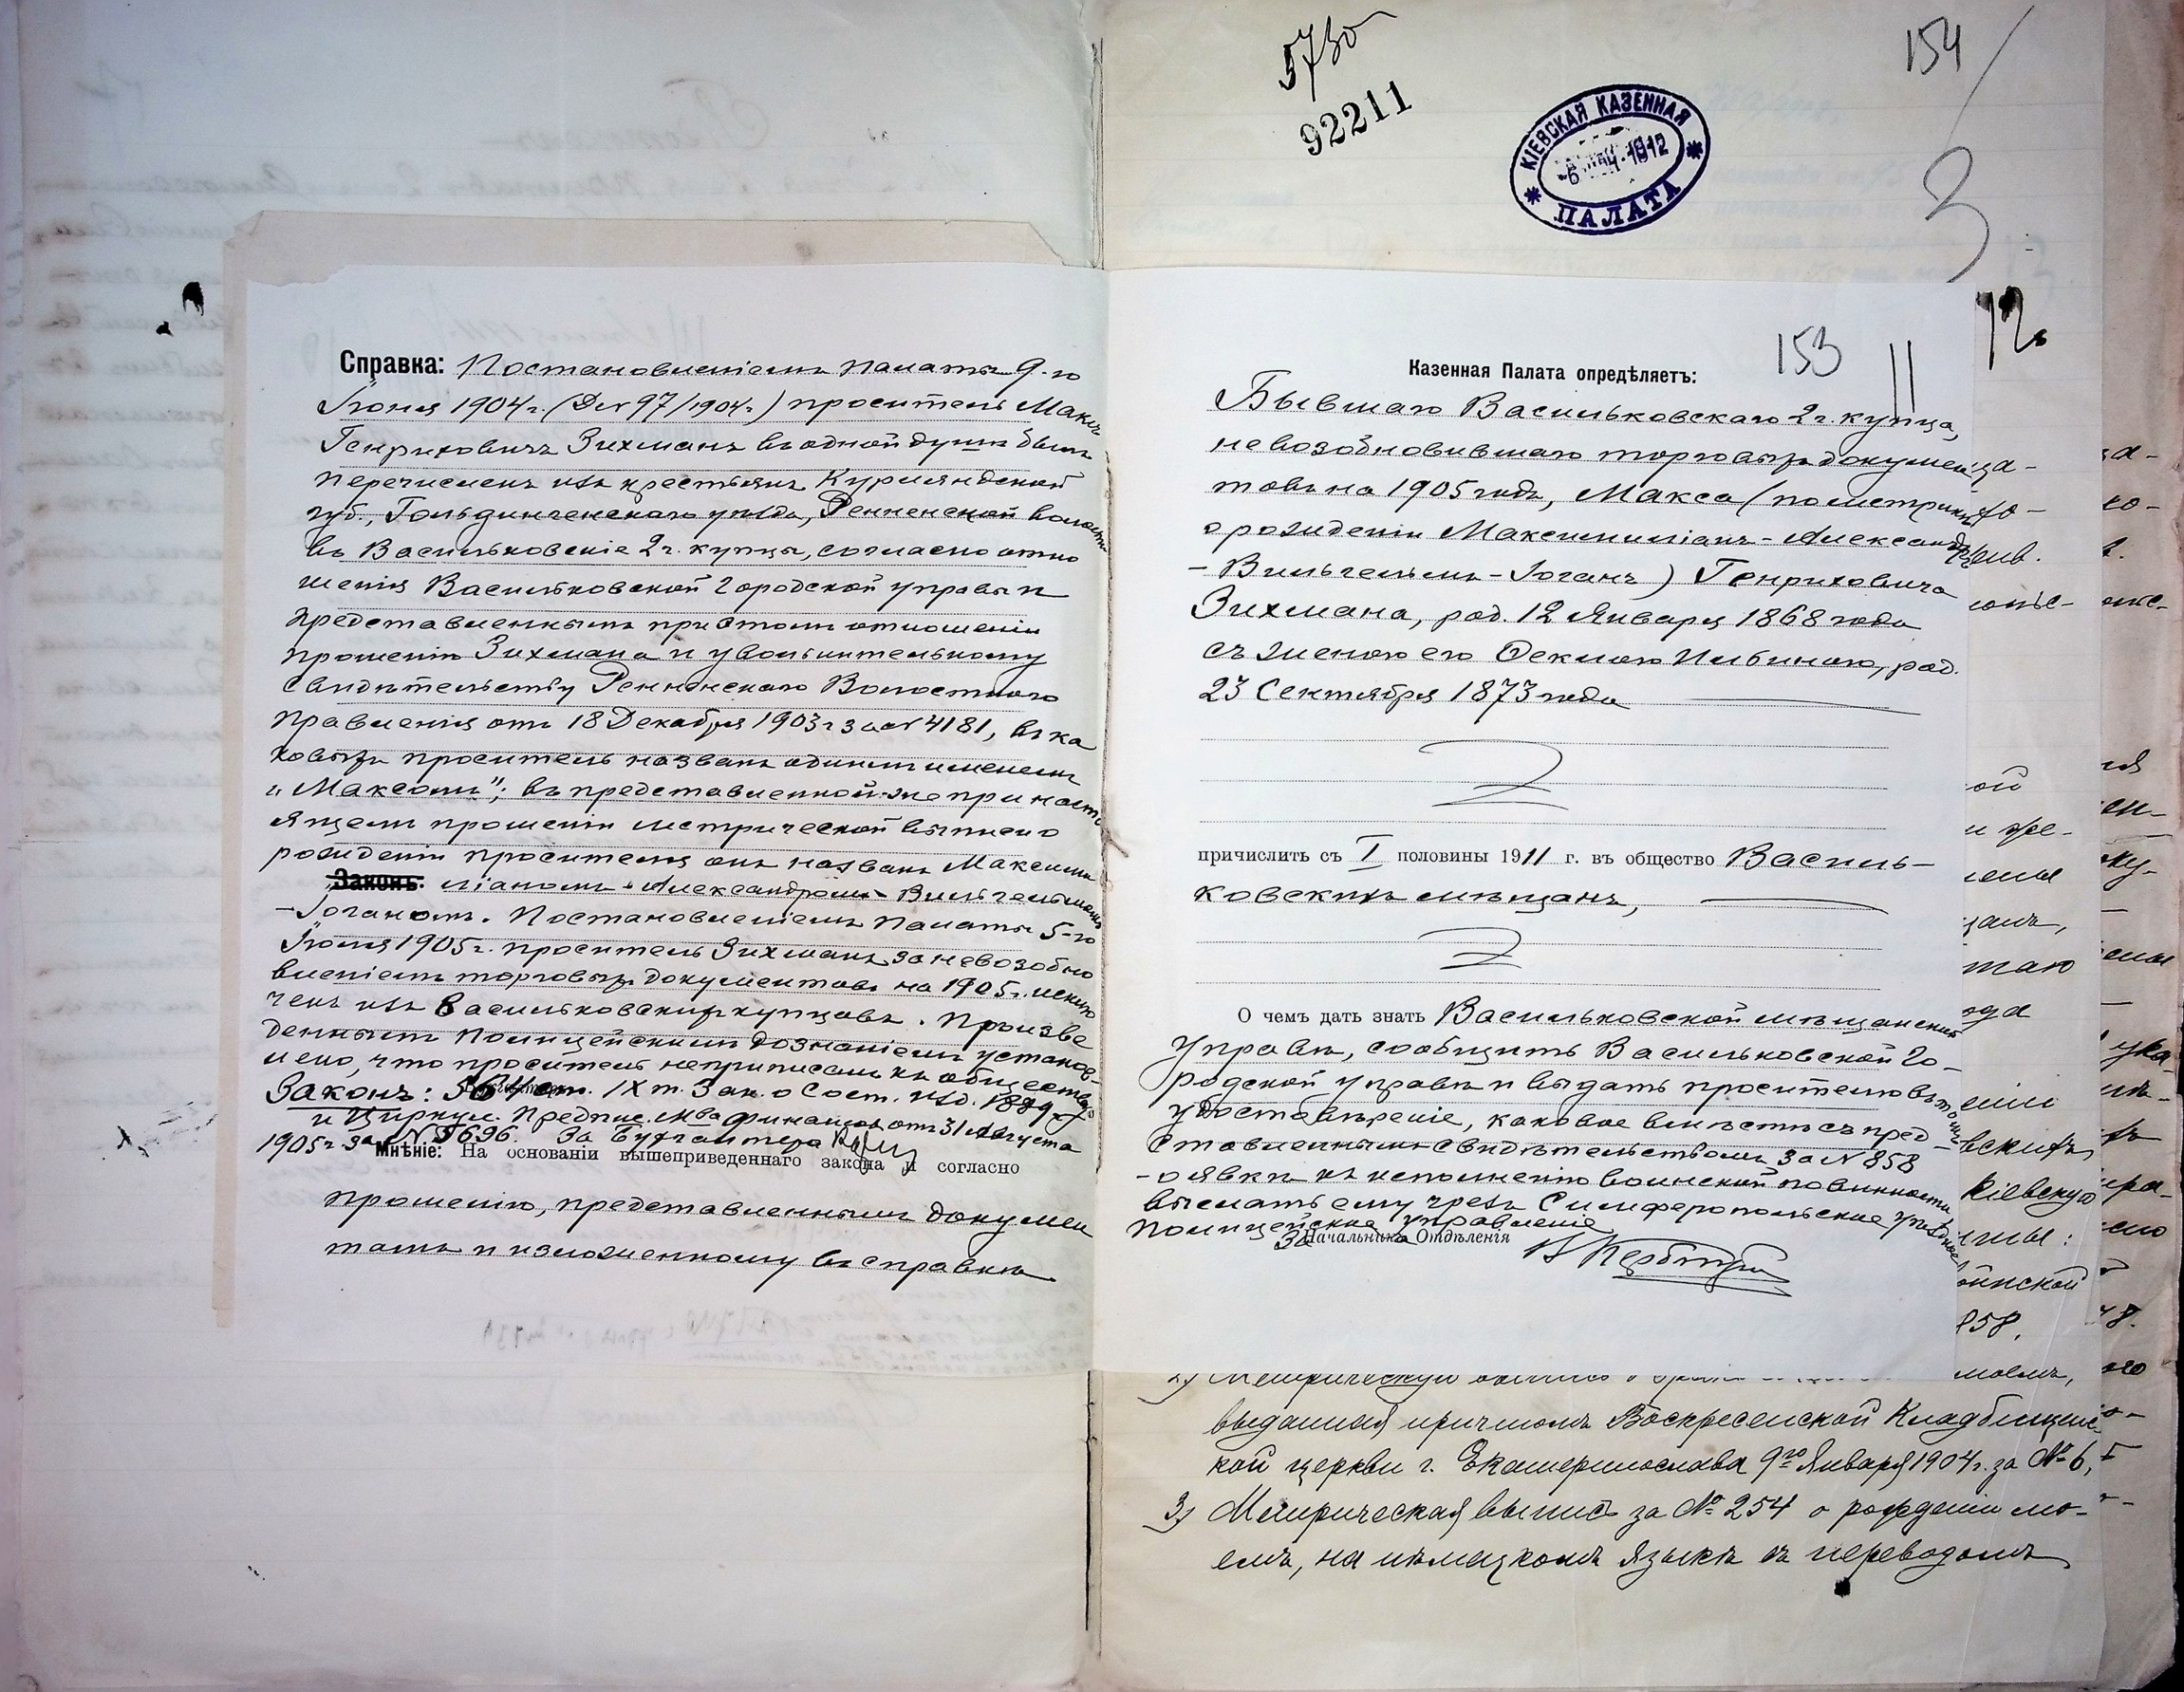 Справка: Постановленіемъ Палаты 9-го
Іюня 1904 г. (Д. № 97/1904 г.) проситель Максъ
Генриховичъ Зихманъ въ одной душѣ былъ
перечисленъ изъ крестьянъ Курляндской
губ., Гольдингенскаго уѣзда, Ренненской волости
въ Васильковскіе 2 г. купцы, согласно отно
шенія Васильковской Городской управы и
представленнымъ при этомъ отношеніи
прошенію Зихмана и увольнительному
свидѣтельству Ренненскаго Волостного
Правленія отъ 18 Декабря 1903 г. за № 4181, въ ка
ковыхъ проситель названъ однимъ именемъ
„Максомъ"; въ представленной-же при насто
ящемъ прошеніи метрической выписи о
рожденіи просителя онъ названъ Максими
Законъ: ліаномъ-Александромъ-Вильгельмомъ
-Іоганомъ. Постановленіемъ Палаты 5-го
Іюля 1905 г. проситель Зихманъ за невозобно
вленіемъ торговыхъ документовъ на 1905 г. исклю
ченъ изъ Васильковскихъ купцовъ. Произве
деннымъ полицейскимъ дознаніемъ установ-
лено, что проситель неприписанъ къ обществу
Законъ: 564 ст. IX т. Зак. о Сост. изд. 1899 г.
и Циркул. Предпис. М-ва Финансовъ отъ 31 Августа
1905 г. за № 5696. За Бухгалтера
Мнѣніе: На основаніи вышеприведеннаго закона и согласно
прошенію, представленнымъ докумен
тамъ и изложенному въ справкѣ
5730
92211
КІЕВСКАЯ КАЗЕННАЯ
1912
ПАЛАТА
154
3
12
153
Казенная Палата опредѣляетъ:
Бывшаго Васильковскаго 2 г. купца,
невозобновившаго торговыхъ докумен
товъ на 1905 годъ, Макса (по метрикѣ
о рожденіи Максимиліанъ-Александръ
-Вильгельмъ-Іоганъ) Генриховича
Зихмана, род. 12 Января 1868 года
съ женою его Феклою Ильиною, род.
23 Сентября 1873 года
причислить съ I половины 1911 г. въ общество Василь-
ковскихъ мѣщанъ,
О чемъ дать знать Васильковской мѣщанской
Управѣ, сообщить Васильковской Го-
родской управѣ и выдать просителю въ томъ
удостовѣреніе, каковое вмѣстѣ съ пред-
ставленнымъ свидѣтельствомъ за № 858
-о явкѣ къ исполненію воинской повинности
выслать ему чрезъ Симферопольское уѣздное
полицейское управленіе
За Начальника Отдѣленія
выданная причтомъ Воскресенской Кладбищенс-
кой церкви г. Екатеринослава 9го Января 1904 г. за № 6,
3) Метрическая выпись за № 254 о рожденіи мо-
емъ, на нѣмецкомъ языкѣ съ переводомъ